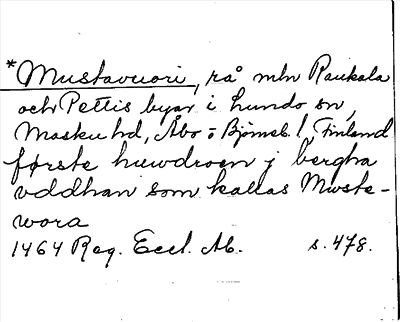 *Mustavuori, rå mln Raukala
och Pettis byar i Lundo sn,
Masku hd, Åbo o Bjömeb. l, Finland
første huwdroen j bergha
vddhan som kallas Mwste-
wora
1464 Reg. Eccl. Ab. s. 478.